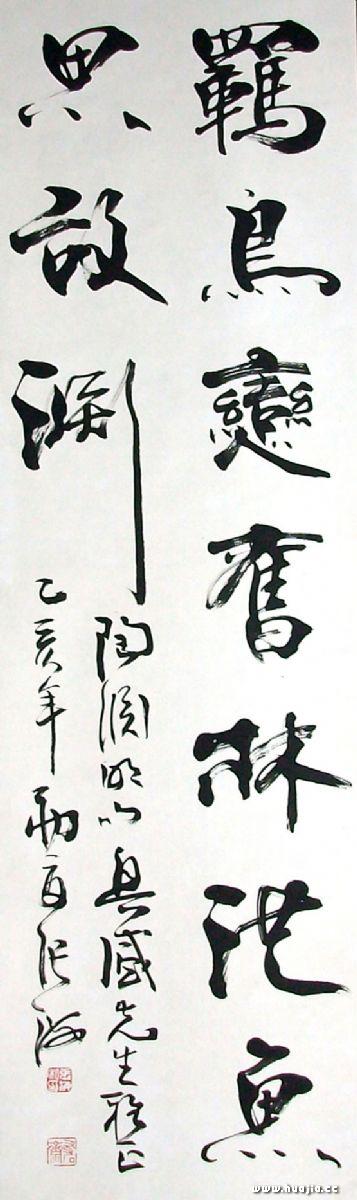 羈鳥戀舊林池魚
思故淵
陶淵明句先生雅正
乙亥年張海
www.huajia.cc